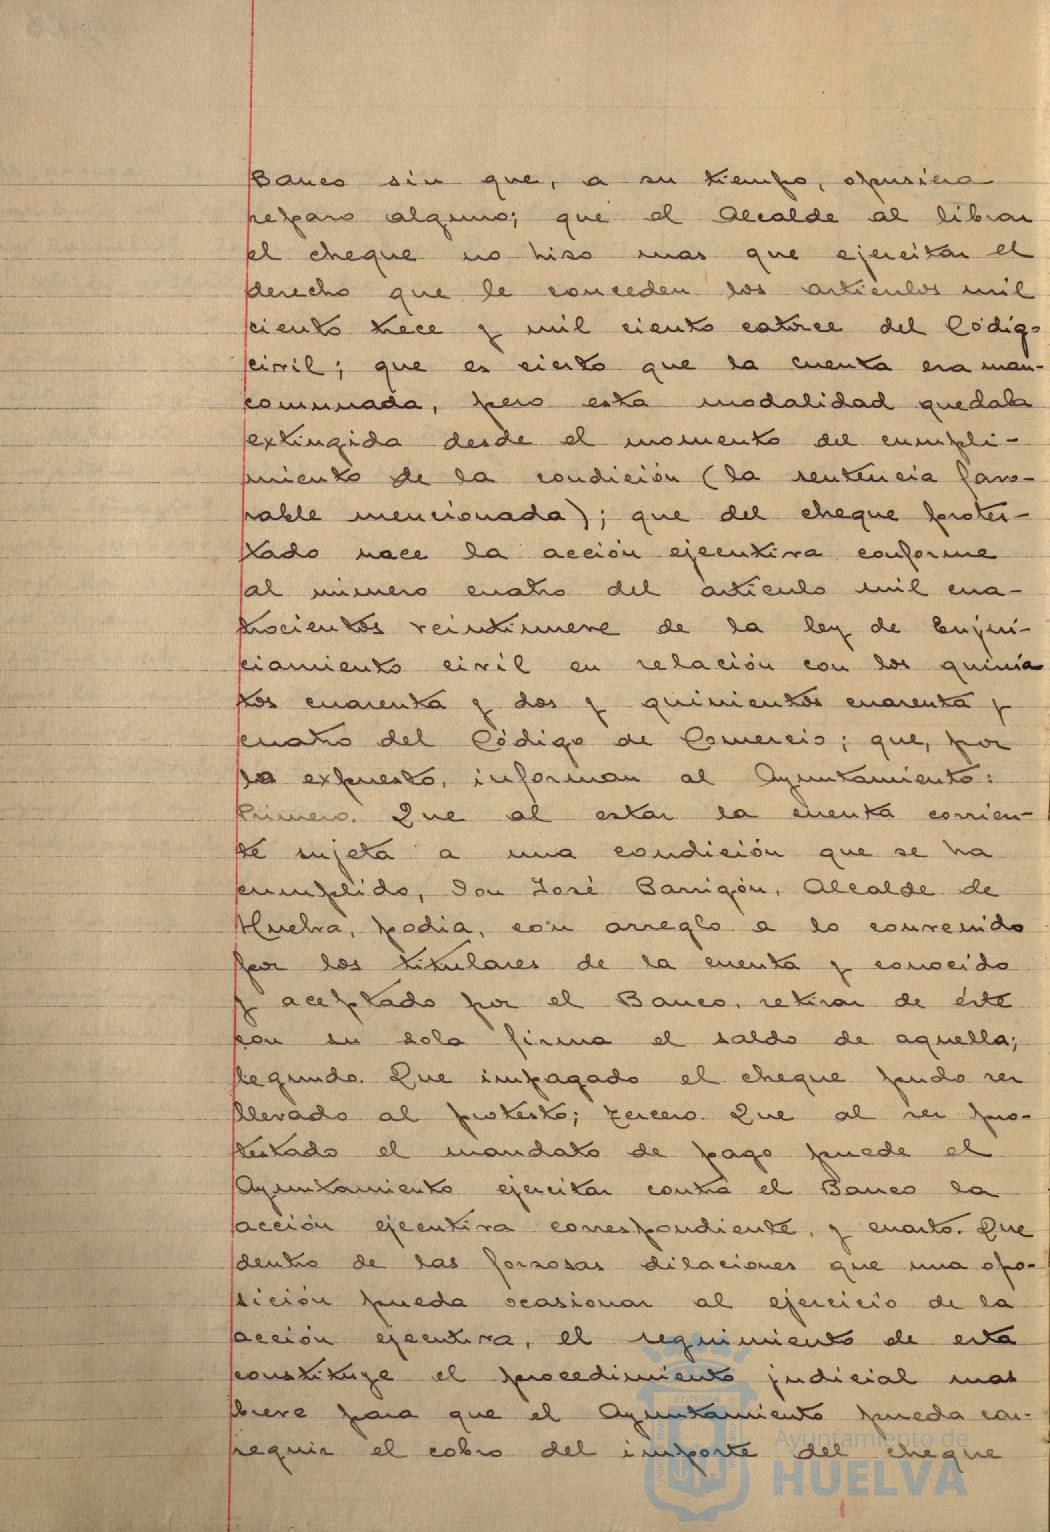 Banco sin que, a su tiempo, opusiera
reparo alguno; que el Alcalde al librar
el cheque no hizo mas que ejercitar el
derecho que le conceden los articulos mil
ciento trece y mil ciento catorce del Código
civil; que es cierto que la cuenta era man-
comunada, pero esta modalidad quedaba
extingida desde el momento del cumpli-
miento de la condición (la sentencia favo-
rable mencionada); que del cheque protes-
tado nace la acción ejecutiva conforme
al número cuatro del artículo mil cua-
trocientos veintinueve de la ley de Enjui-
ciamiento civil en relación con los quinien
tos cuarenta y dos y quinientos cuarenta y
cuatro del Código de Comercio; que, por
lo expuesto, informan al Ayuntamiento:
Primero. Que al estar la cuenta corrien-
te sujeta a una condición que se ha
cumplido, Don José Barrigón, Alcalde de
Huelva, podia, con arreglo a lo convenido
por los titulares de la cuenta y conocido
y aceptado por el Banco, retirar de éste
con su sola firma el saldo de aquella;
Segundo. Que impagado el cheque pudo ser
llevado al protesto; tercero. Que al ser pro-
testado el mandato de pago puede el
Ayuntamiento ejercitar contra el Banco la
acción ejecutiva correspondiente, y cuarto. Que
dentro de las forzosas dilaciones que una opo-
sición pueda ocasionar al ejercicio de la
acción ejecutiva, el seguimiento de esta
constituye el procedimiento judicial mas
breve para que el Ayuntamiento pueda con-
seguir el cobro del importe del cheque
Ayuntamiento de
HUELVA